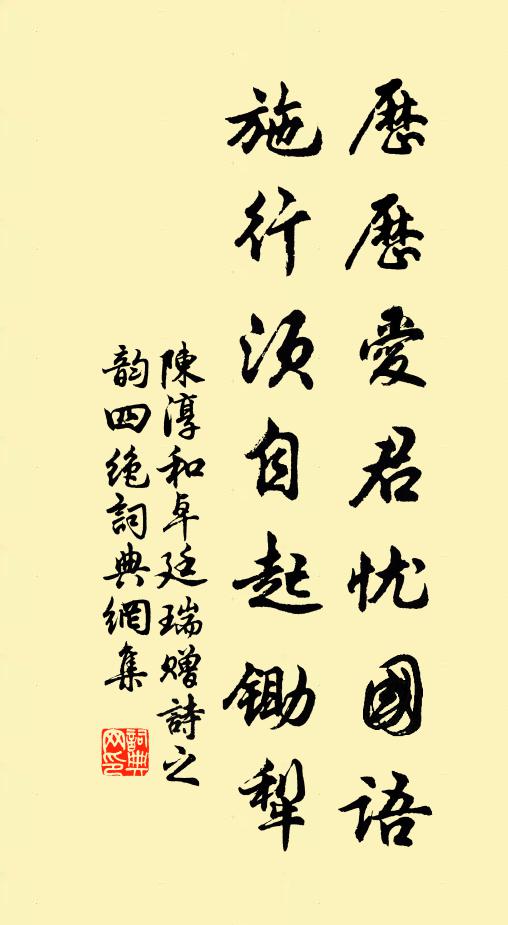 歷歷愛君忧國語
施行须自起鋤犁
陳淳和卓廷瑞贈詩之
韵四绝詞典網集
詞典
网印